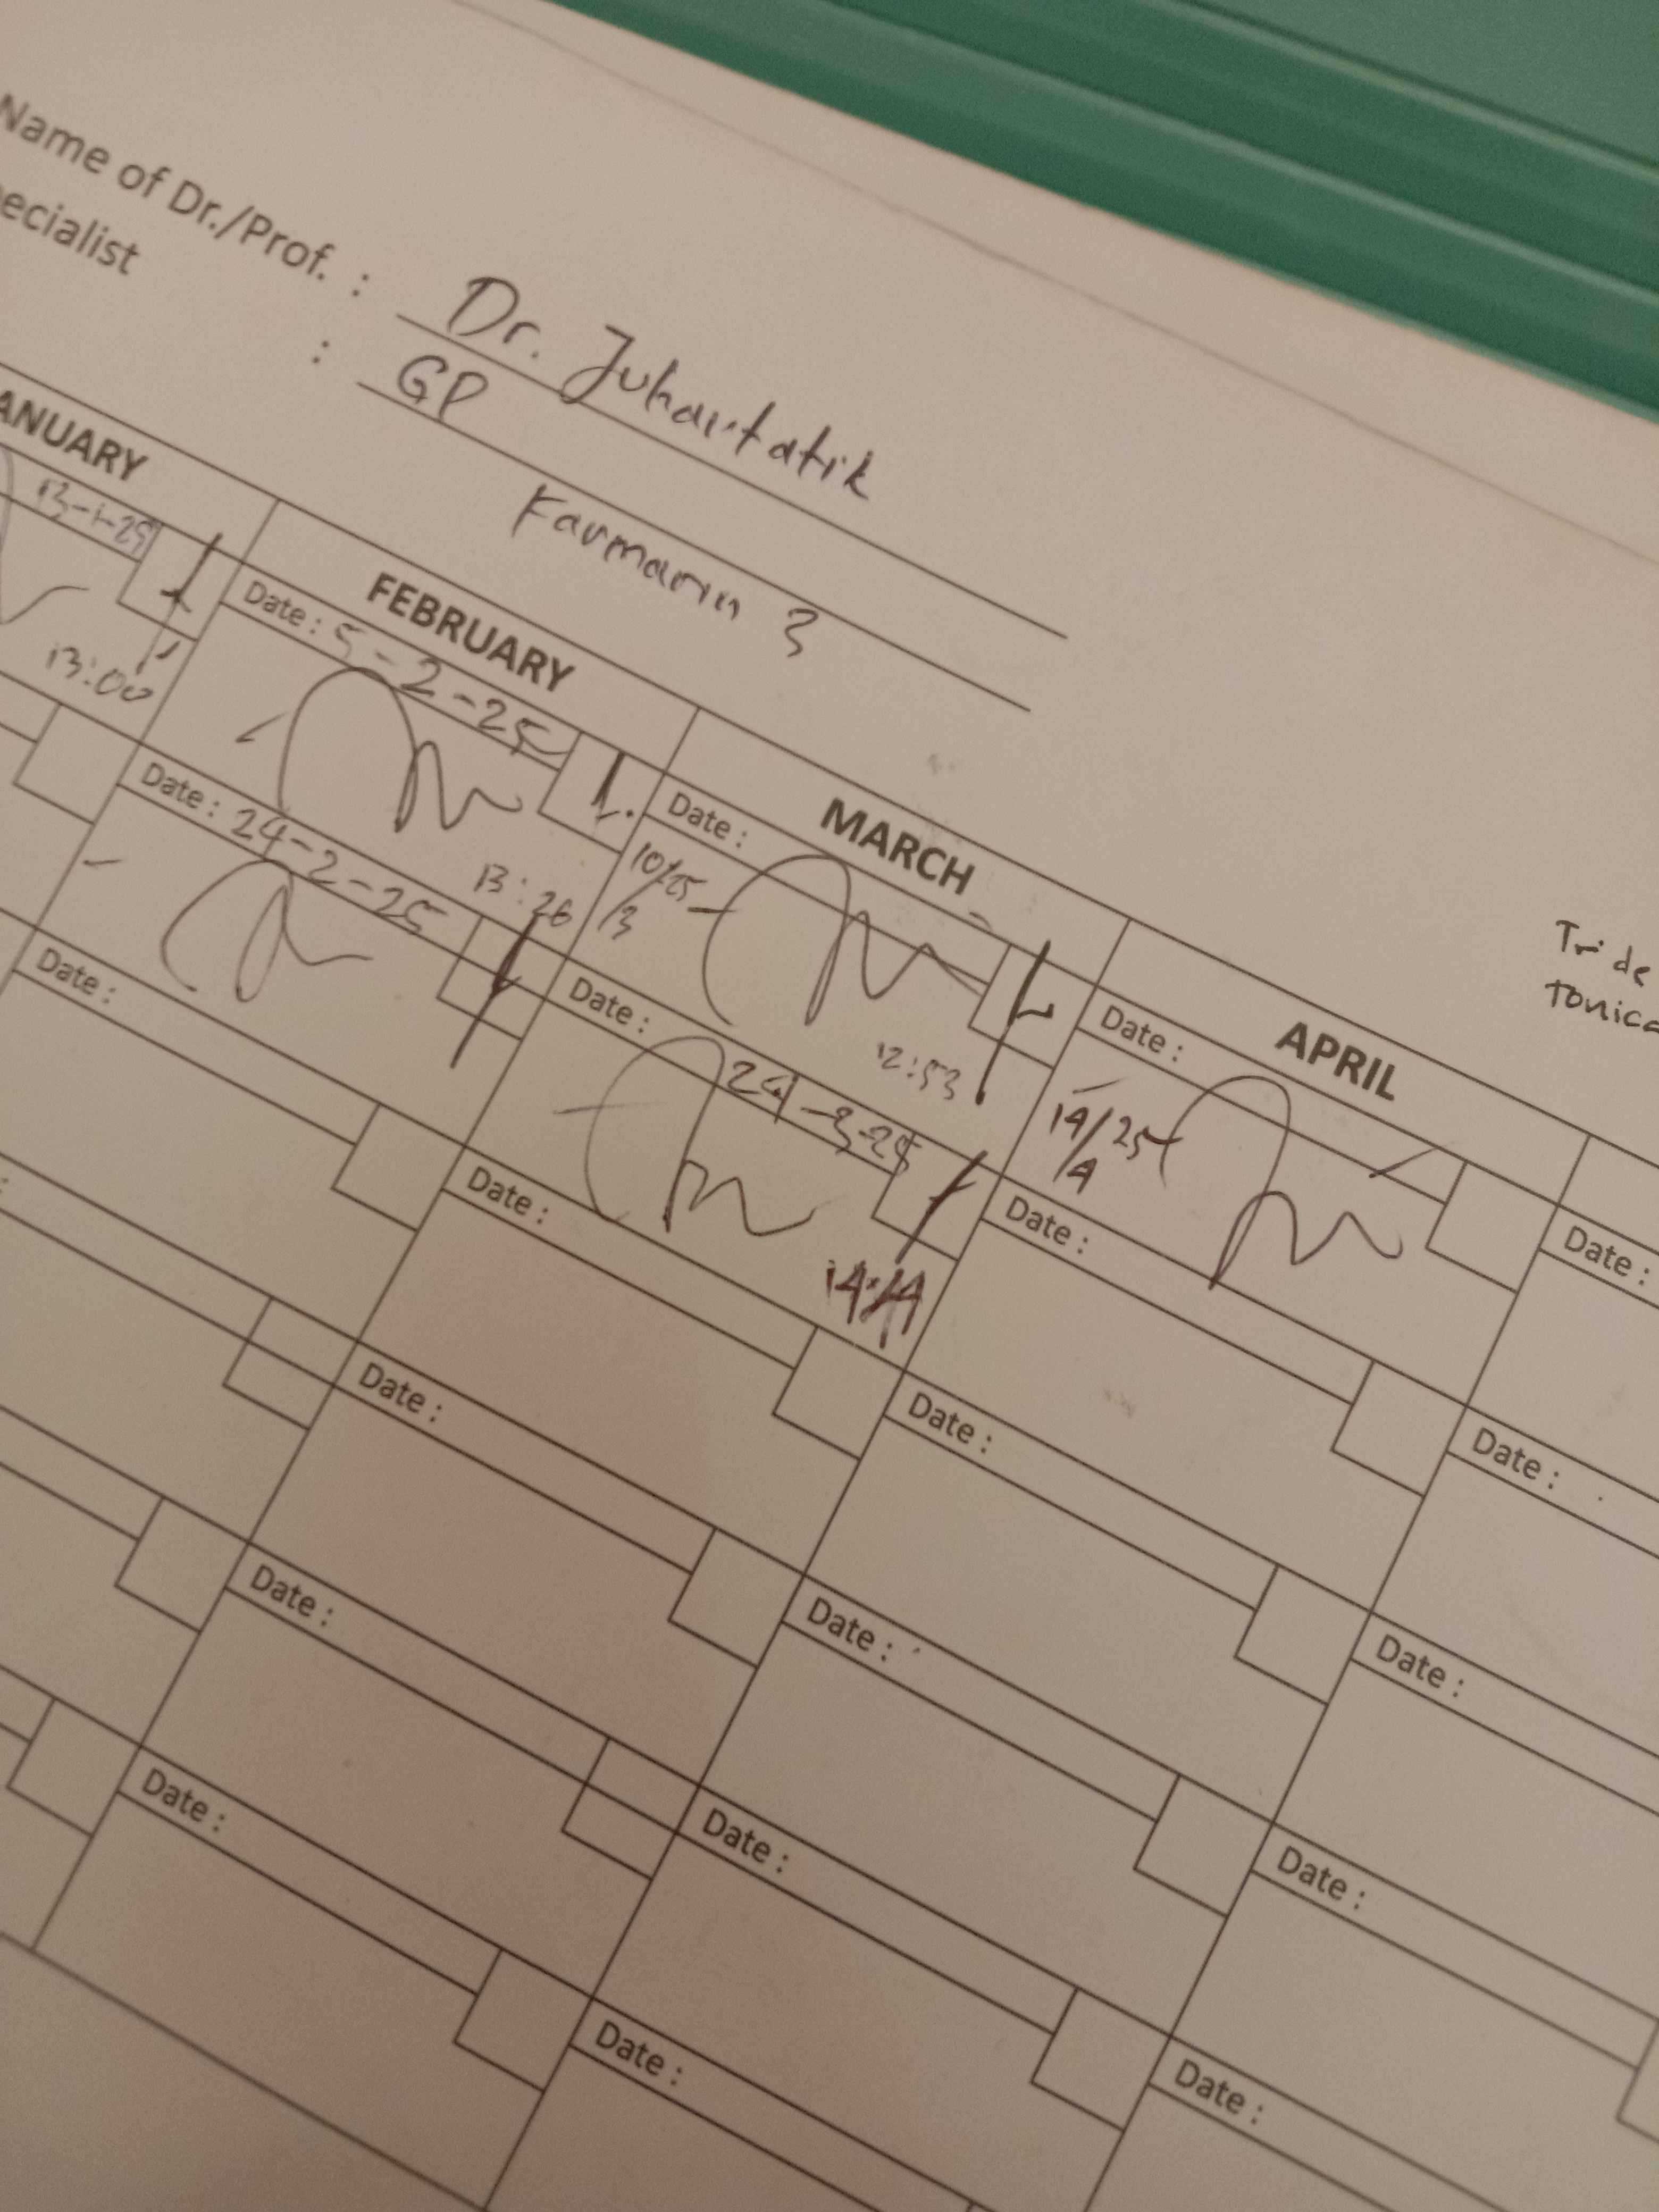 Name of Dr./Prof. : Dr. Juhartatik
ecialist : GP
Farmarin 3
ANUARY
13-1-25
13:00
FEBRUARY
Date : 5-2-25
13:26
Date : 24-2-25
Date :
Date :
Date :
Date :
MARCH
Date :
10/25
/3
12:53
Date : 24-3-25
14:44
Date :
Date :
Date :
Date :
APRIL
Date :
14/25
/4
Date :
Date :
Date :
Date :
Date :
Tri de
tonica
Date :
Date :
Date :